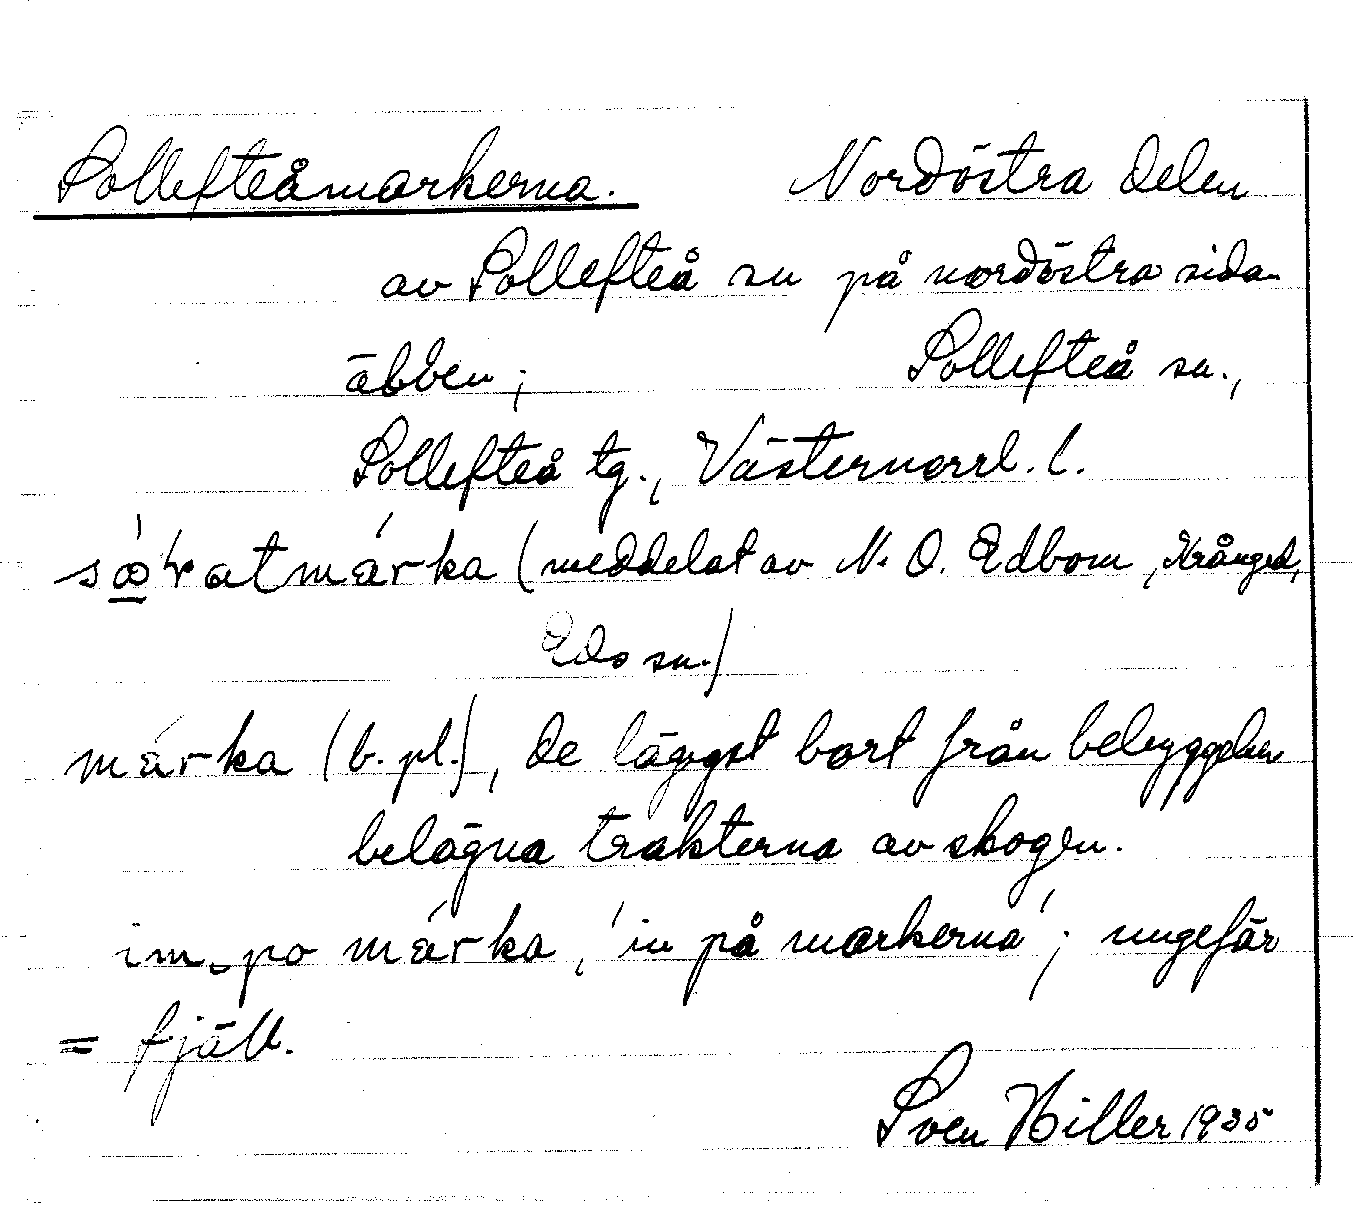 Sollefteåmarkerna. Nordöstra delen
av Sollefteå sn på nordöstra sidan
älven; Sollefteå sn.,
Sollefteå tg., Västernorrl. l.
(meddelat av N. O. Edbom, Krånged,
Eds sn.)
márka (b. pl.), de längst bort från bebyggelsen
belägna trakterna av skogen.
im po márka, 'in på markerna'; ungefär
= fjäll.
Sven Hiller 1935